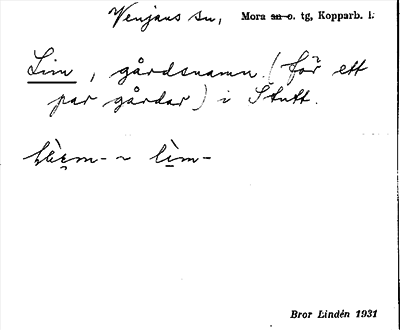 Venjans sn, Mora sn o. tg, Kopparb. l.
Lim, gårdsnamn (för ett
par gårdar) i Stutt.
~ lìm-
Bror Lindén 1931